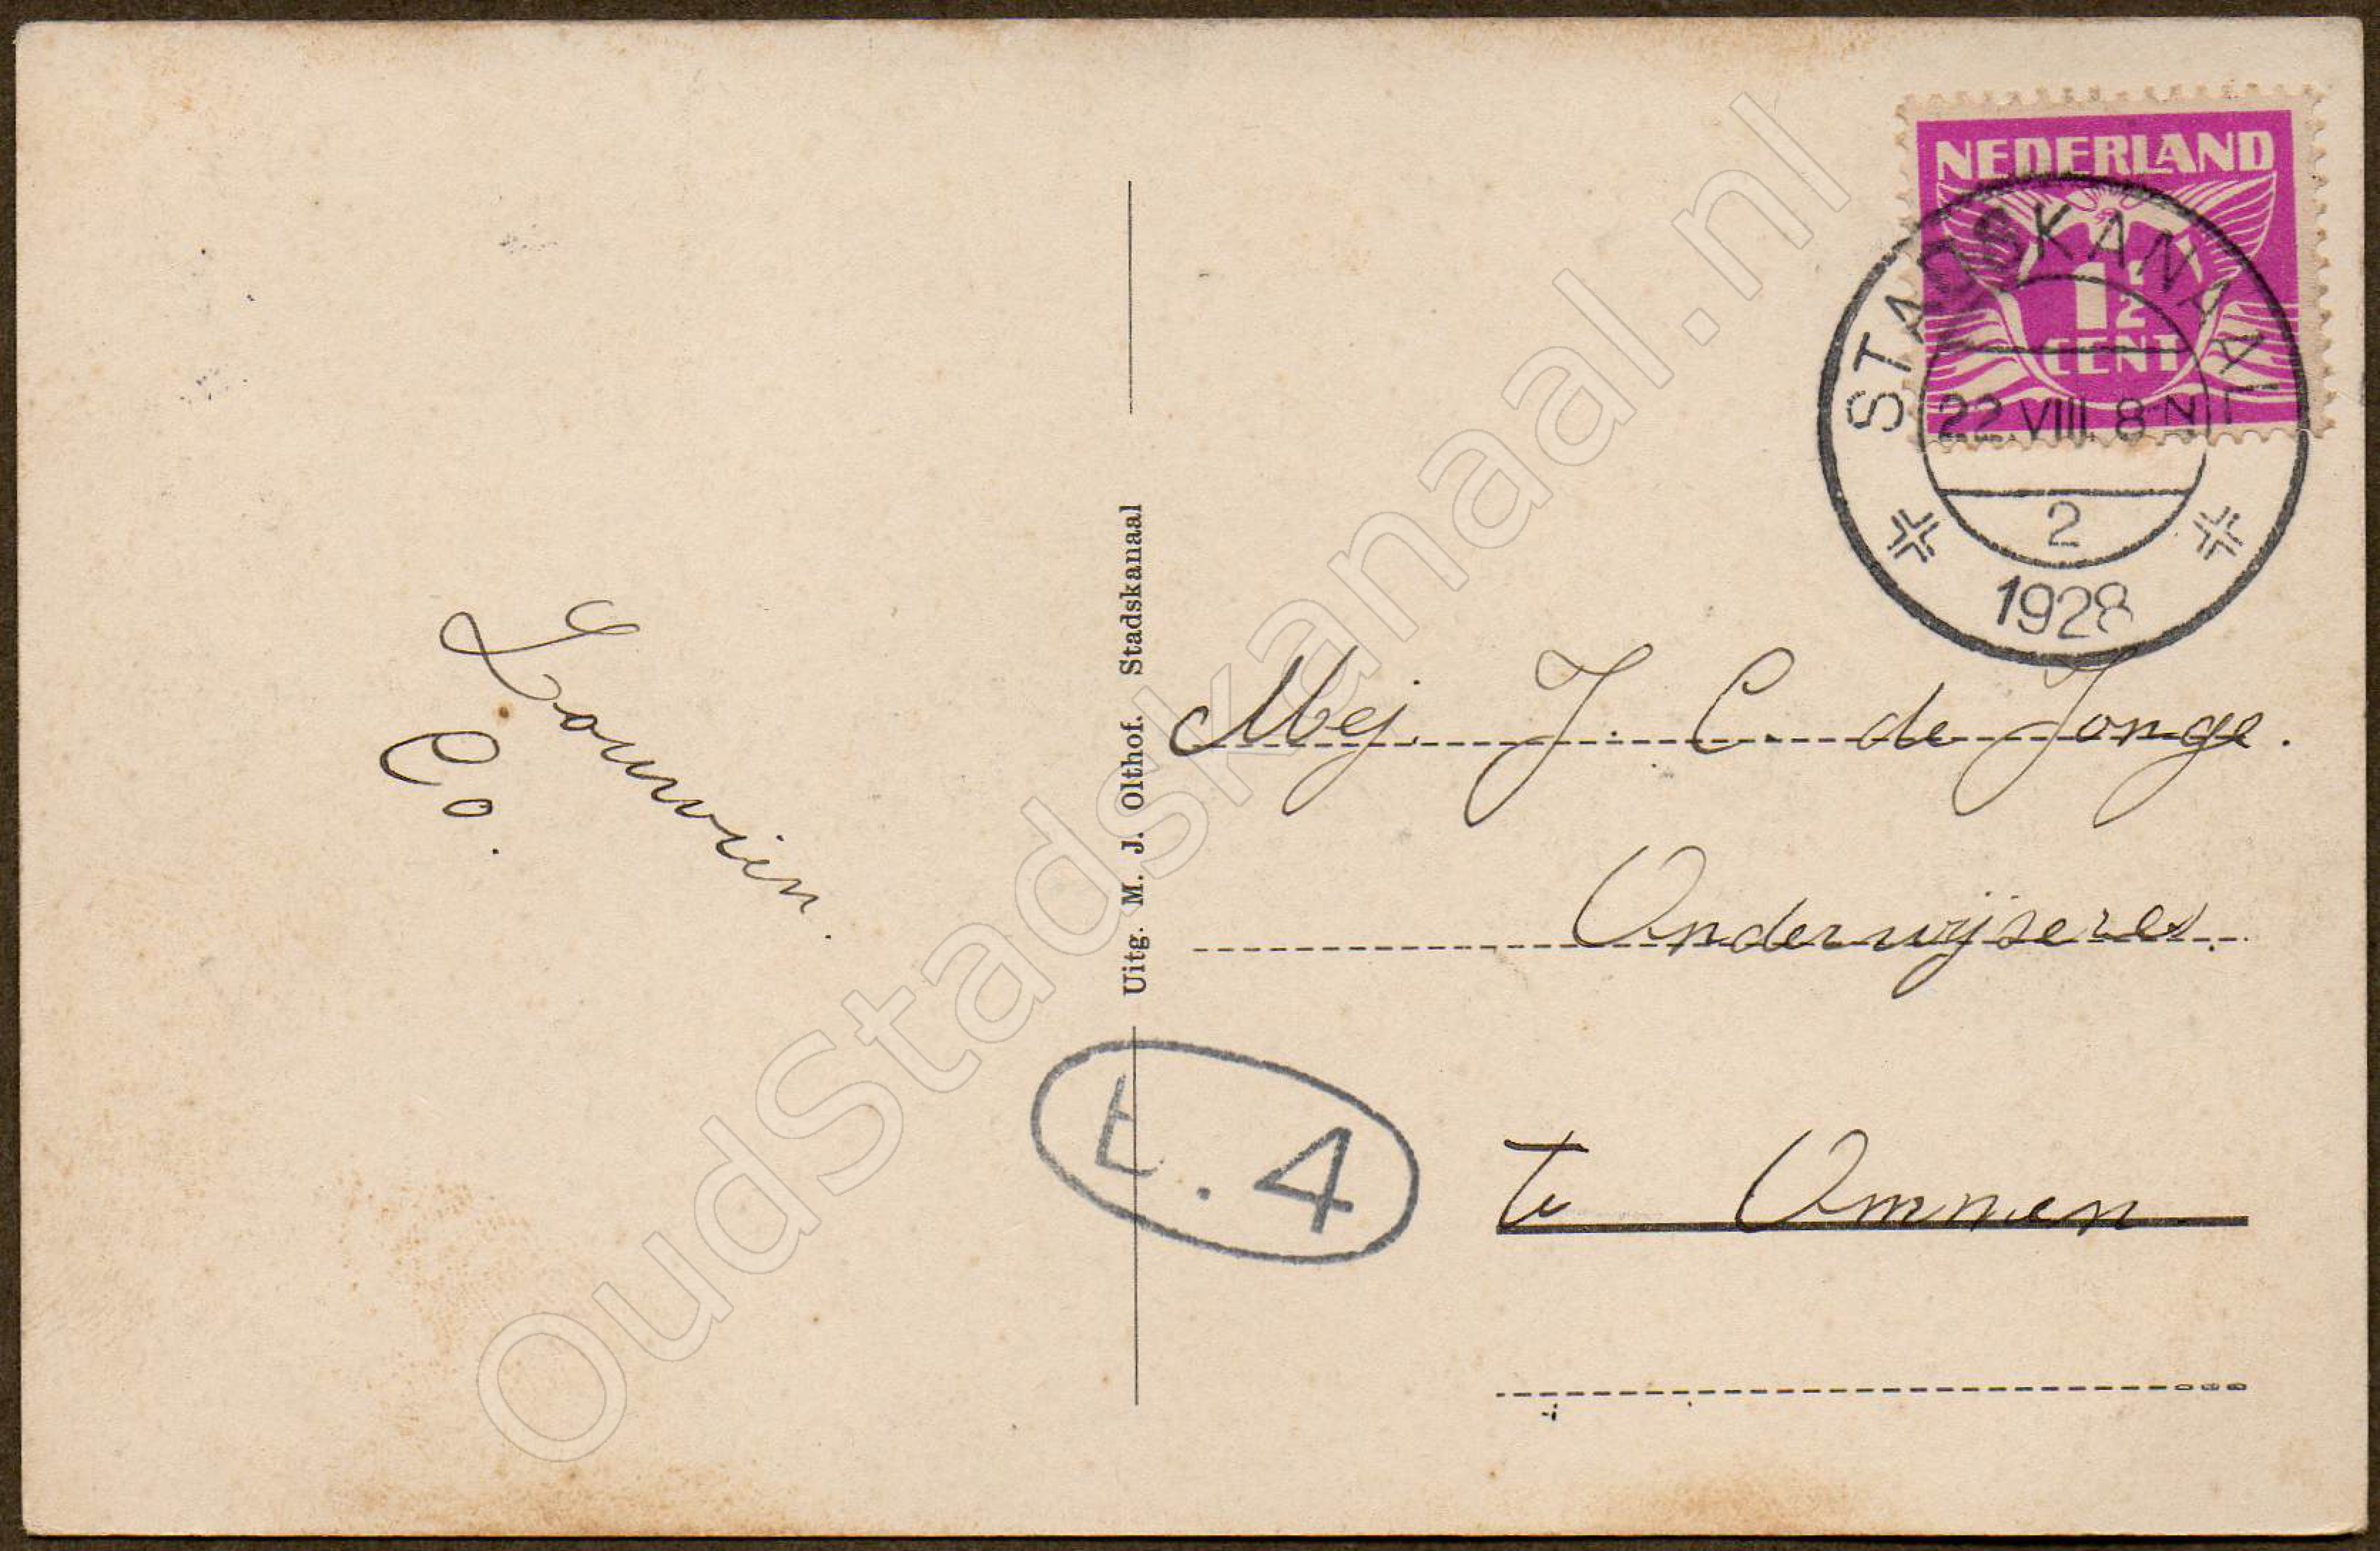 NEDERLAND
1½
CENT
STADSKANAAL
22 VIII. 8 N
2
1928
Co.
Uitg. M. J. Olthof. Stadskanaal
Mej. J. C. de Jonge.
Onderwijseres.
te Ommen.
E. 4
OudStadskanaal.nl